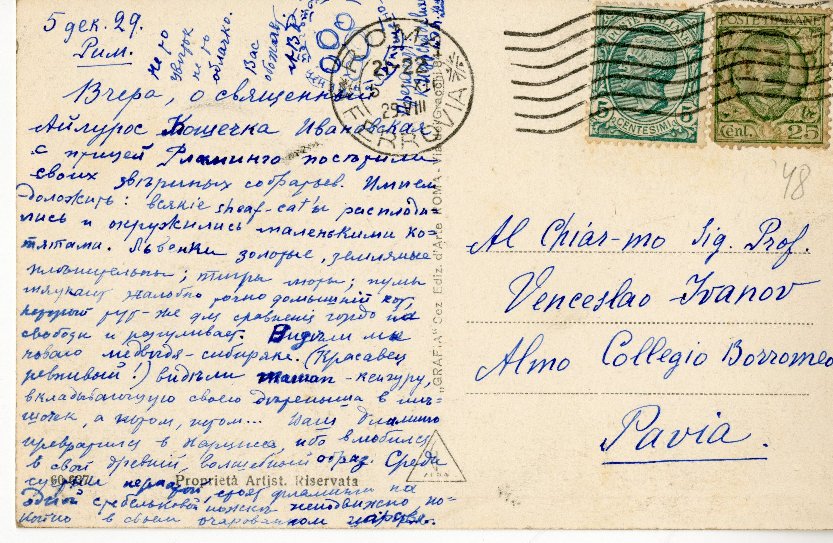 5 дек. 29.
Рим.
Вчера, о священный
Айлурос Кошечка Ивановская
с птицей Фламинго посетили
своих звѣриных собратьев. Имѣем
доложить: всякіе sheaf-cat'ы расплоди-
лись и окружились маленькими ко-
тятами. Львенки золотые, земляные
плѣнительны; тигры ; пумы
мяукают жалобно точно домашній кот,
который тут-же для сравненія гордо на
свободѣ и разгуливает. Видѣли мы
новаго медвѣдя-сибиряка. (Красавец
ревнивый!) видѣли maman-кенгуру,
вкладывающую своего дѣтеныша в мѣ-
шочек, а потом, потом... Ваш Фламинго
превратился в Нарцисса, ибо влюбился
в свой древній, волшебный образ. Среди
стоят фламинго на
одной стебельковой ножкѣ неподвижно по-
в своем очарованном царствѣ.
Вас
обожает
ROMA
FERROVIA
29 VIII
POSTE ITALIANE
5 CENTESIMI 5
POSTE ITALIANE
Cent. 25
48
Al Chiar-mo Sig. Prof.
Venceslao Ivanov
Almo Collegio Borromeo
Pavia.
„GRAFIA" Sez. Ediz. d'Arte ROMA - Via
60-697
Proprietà Artist. Riservata